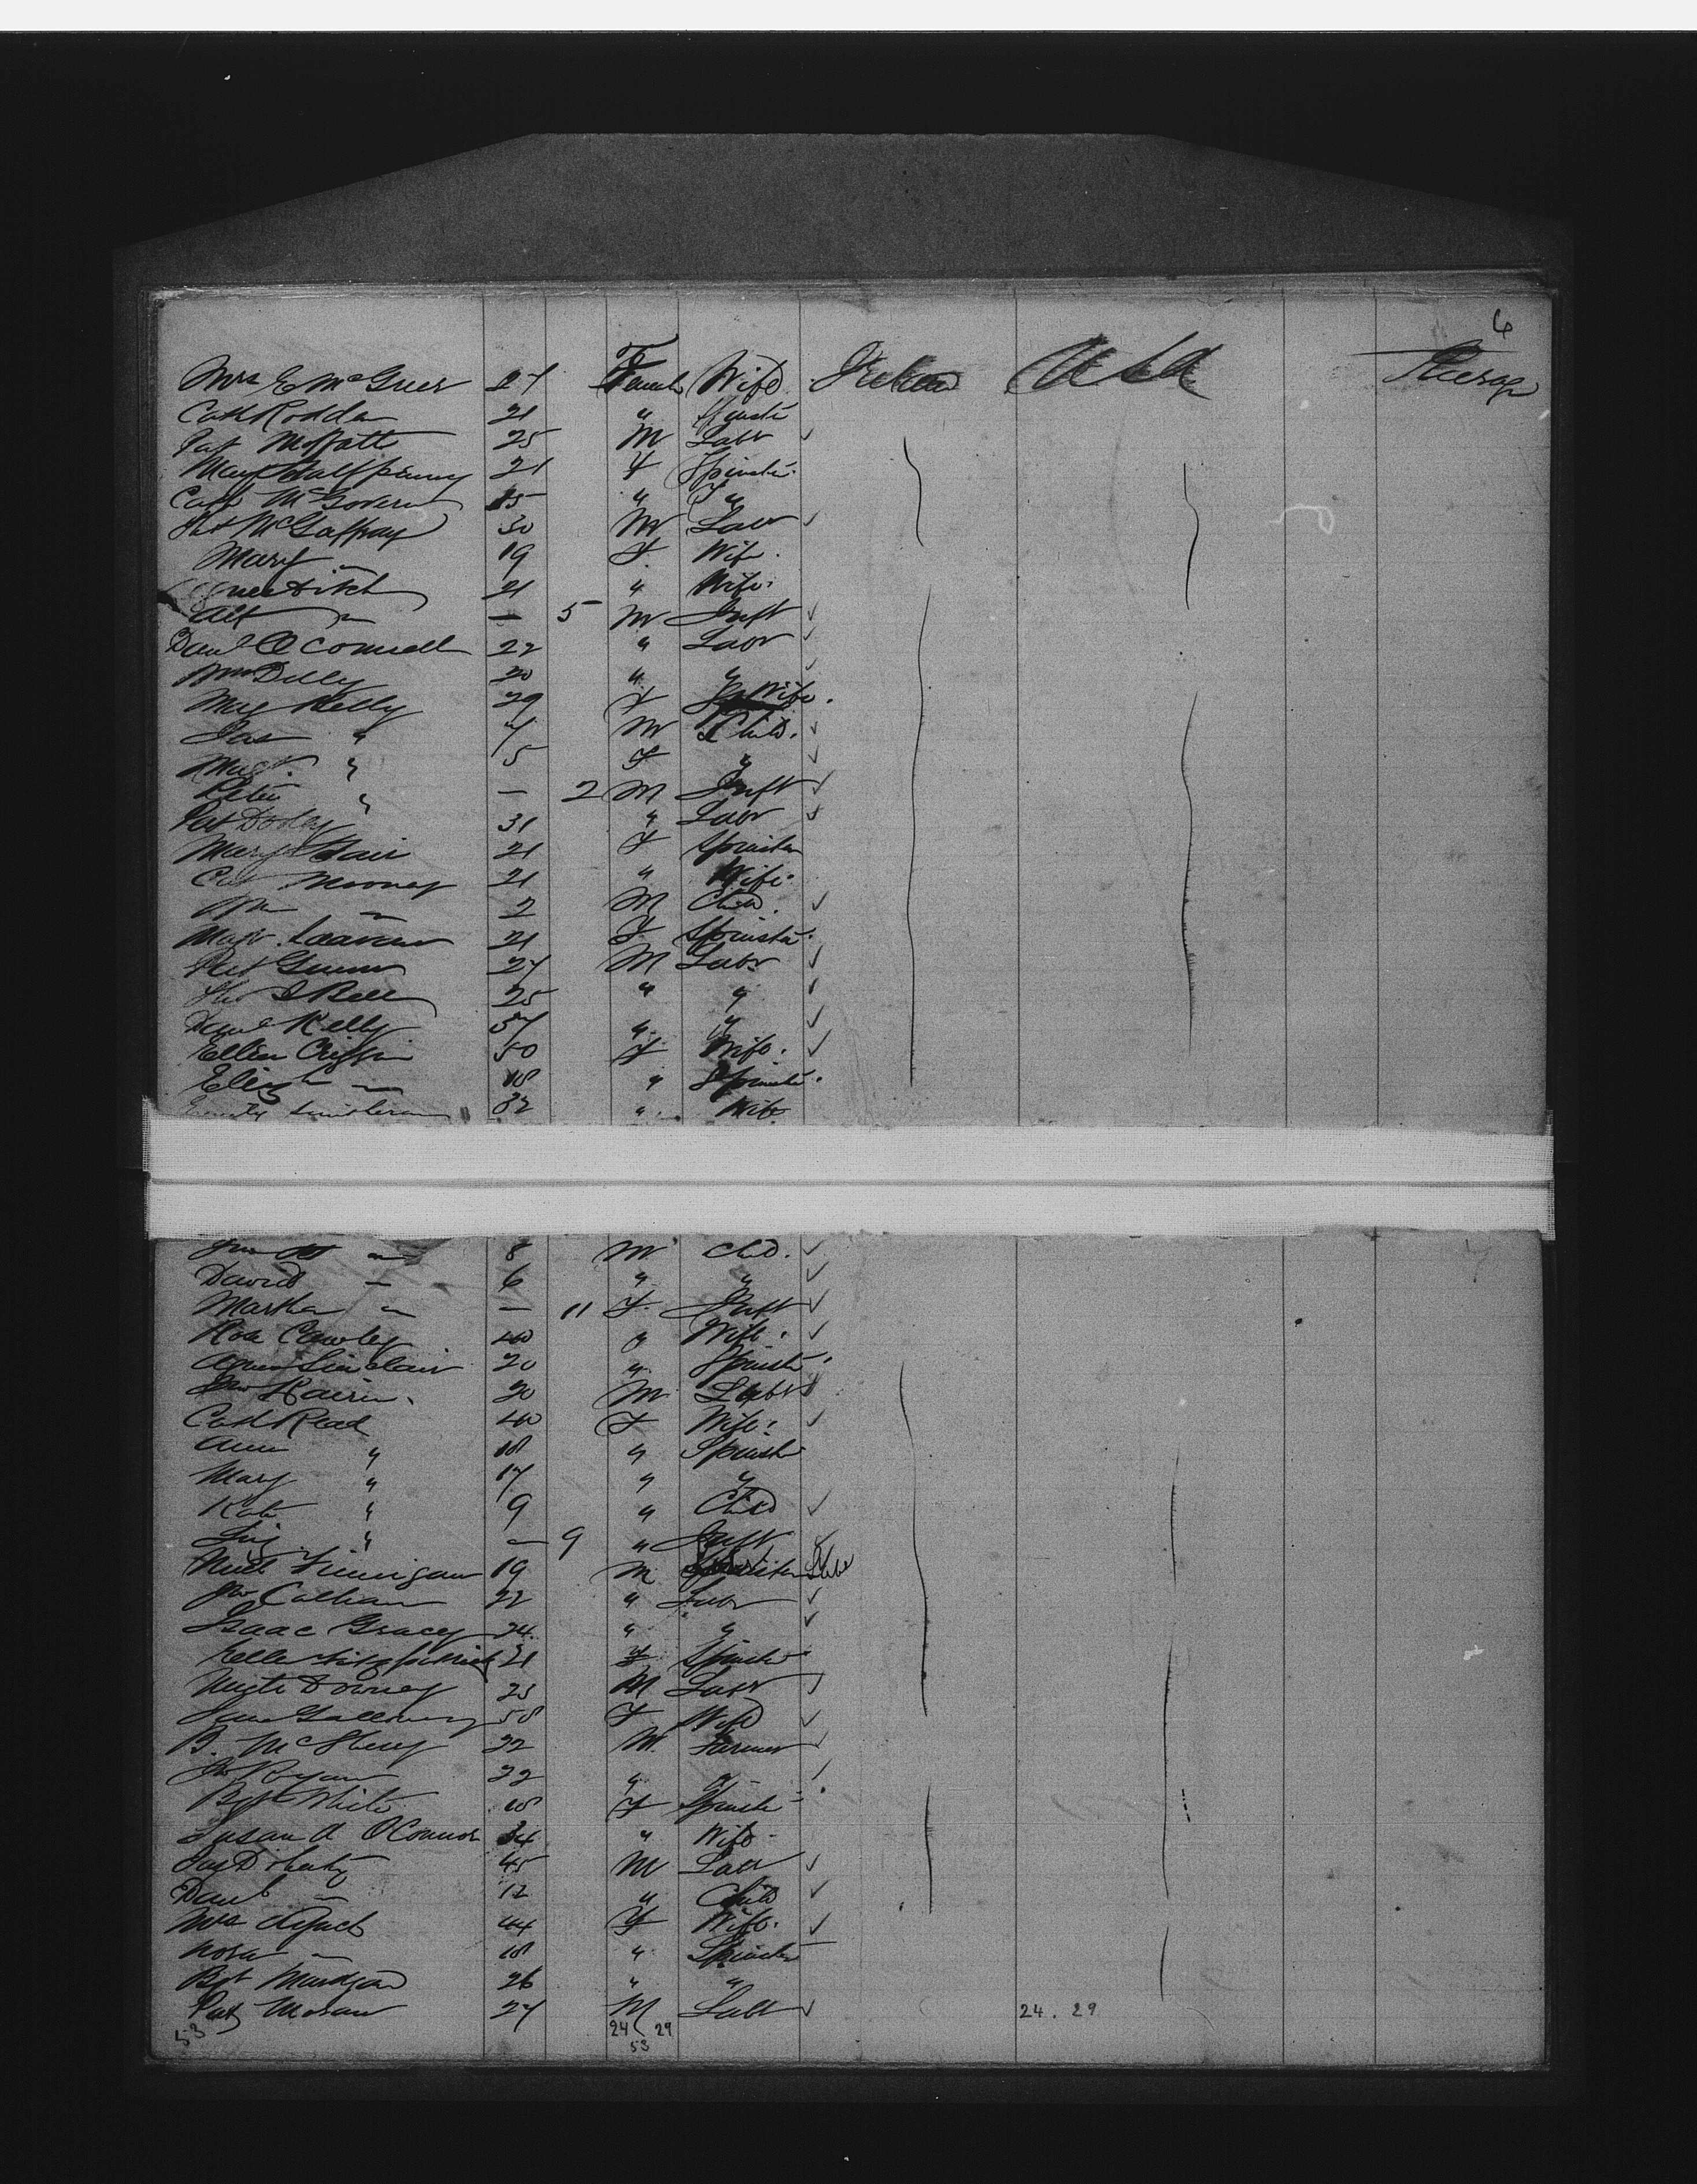 6
Mrs E McGreer 27 Female Wife Ireland USA Steerage
Cath Rodden 21 " Spinstr
Pat Moffatt 25 M Labr ✓
Mary Halfpenny 21 F Spinstr
Cath McGovern 15 " "
Pat McGaffray 30 M Labr ✓
Mary " 19 F. Wife.
21 " Wife.
Alf " — 5 M Inft ✓
Danl O'Connell 22 " Labr ✓
Wm 20 " " ✓
Mag Kelly 29 F Wife.
Jas " 7 M Child. ✓
Magt. " 5 F " ✓
Peter " — 2 M Inft ✓
Pat 31 " Labr ✓
Mary 21 F Spinster
Cath Mooney 21 " Wife.
Wm " 2 M Child. ✓
Magt. 21 F Spinstr.
Pat 27 M Labr ✓
Bell 25 " " ✓
Danl Kelly 57 " " ✓
Ellen 50 F Wife. ✓
Eliza " 18 " Spinstr.
32 " Wife
Jno " 8 M Child. ✓
David " 6 " " ✓
Martha " — 11 F. Inft ✓
Rose Cawley 40 " Wife. ✓
Agnes Sinclair 20 " Spinstr.
Jno 20 M Labr ✓
Cath Read 40 F Wife. ✓
Ann " 18 " Spinstr
Mary " 17 " "
Kate " 9 " Child ✓
Liz " — 9 " Inft ✓
Michl Finnigan 19 M Labr
Jno 22 " Labr ✓
Isaac Gracey 24 " " ✓
Ellen Fitzpatrick 21 F Spinstr
Downey 25 M Labr ✓
Jane Galloway 58 F Wife ✓
B. McSherry 22 M. Farmer ✓
Jno Ryan 22 " " ✓
Bgt White 18 F Spinstr
Susan A O'Connor 34 " Wife
Jas Doherty 45 M Labr ✓
Danl " 12 " Child ✓
Mrs Lynch 44 F Wife. ✓
Nora " 18 " Spinstr
Bgt 26 " "
Pat Moran 27 M Labr ✓ 24. 29
53 24 29
53